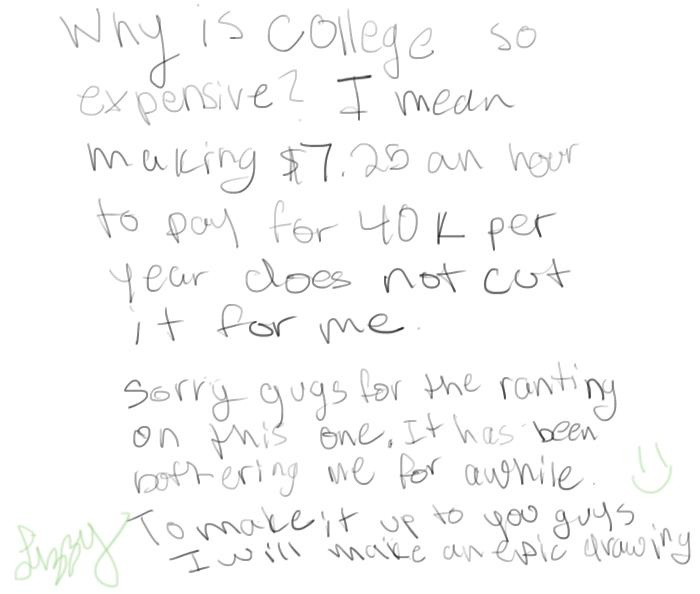 Why is college so
expensive? I mean
making $7.25 an hour
to pay for 40K per
year does not cut
it for me.
Sorry guys for the ranting
on this one. It has been
bothering me for awhile.
To make it up to you guys
I will make an epic drawing
Lizzy